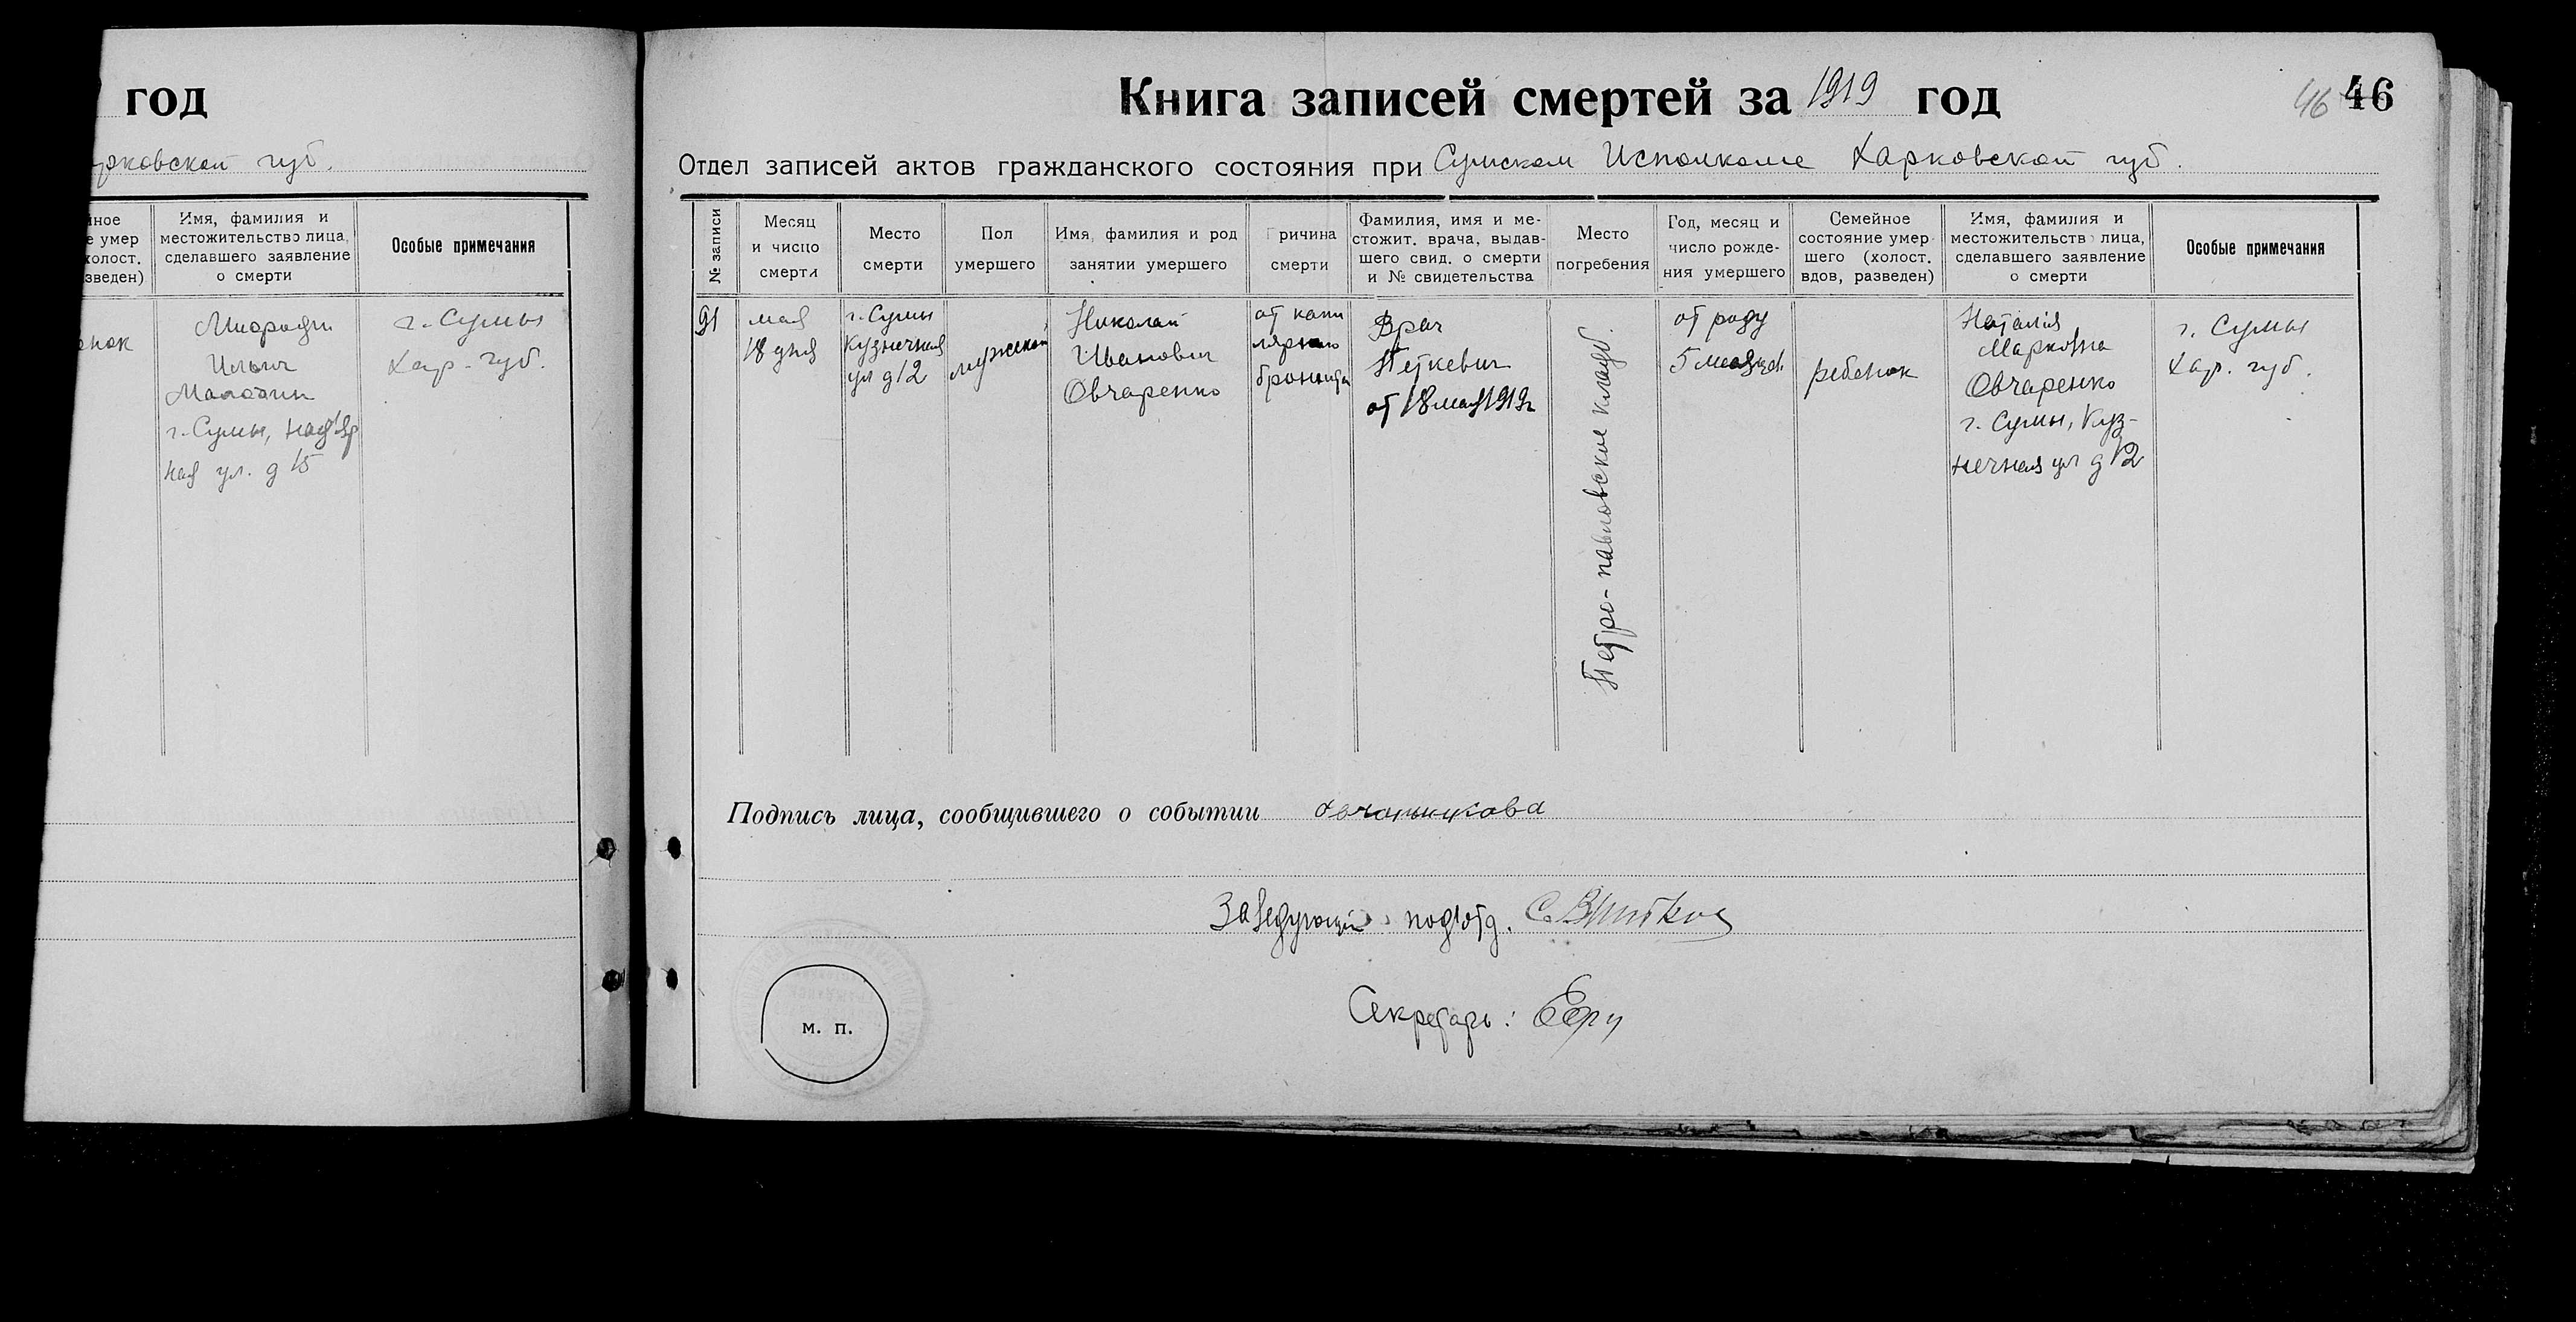 год
рковской губ.
йное
е умер
холост.
зведен)
Имя, фамилия и
местожительство лица,
сделавшего заявление
о смерти
Особые примечания
енок
Ильич
г. Сумы,
ная ул. д 15
г. Сумы
Хар. губ.
Книга записей смертей за 1919 год
46 46
Отдел записей актов гражданского состояния при Сумском Исполкоме Харковской губ.
№ записи
Месяц
и число
смерти
Место
смерти
Пол
умершего
Имя, фамилия и род
занятии умершего
Причина
смерти
Фамилия, имя и ме-
стожит. врача, выдав-
шего свид. о смерти
и № свидетельства
Место
погребения
Год, месяц и
число рожде-
ния умершего
Семейное
состояние умер-
шего (холост.
вдов, разведен)
Имя, фамилия и
местожительство лица,
сделавшего заявление
о смерти
Особые примечания
91
мая
18 дня
г. Сумы
Кузнечная
ул д 12
мужской
Николай
Иванович
Овчаренко
от капи
лярного
бронхита
Врач
Петкевич
от 18 мая 1919г
Петро-павловское кладб.
от роду
5 месяцев
ребенок
Наталия
Марковна
Овчаренко
г. Сумы, Куз-
нечная ул д 12
г. Сумы
Хар. губ.
Подпись лица, сообщившего о событии
Заведующий под'отд.
Секретарь:
м. п.